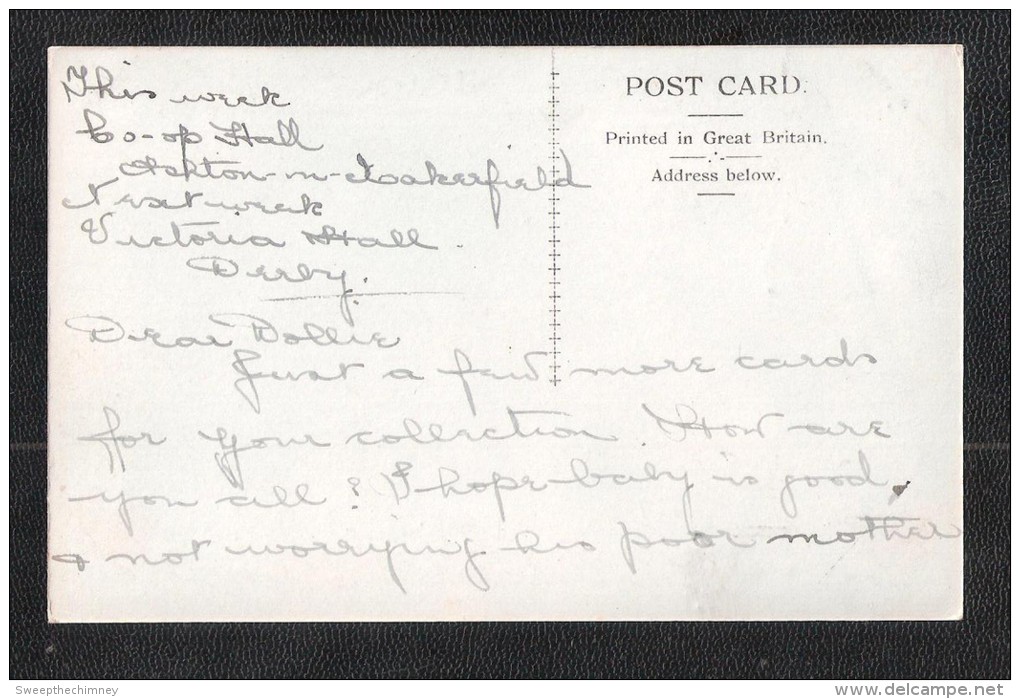 This week
Co-op Hall
Ashton-in-Makerfield
Next week
Victoria Hall.
Derby.
POST CARD.
Printed in Great Britain.
Address below.
Dear Dollie
Just a few more cards
for your collection. How are
you all? I hope baby is good,
& not worrying his poor mother
Sweepthechimney
delcampe.net